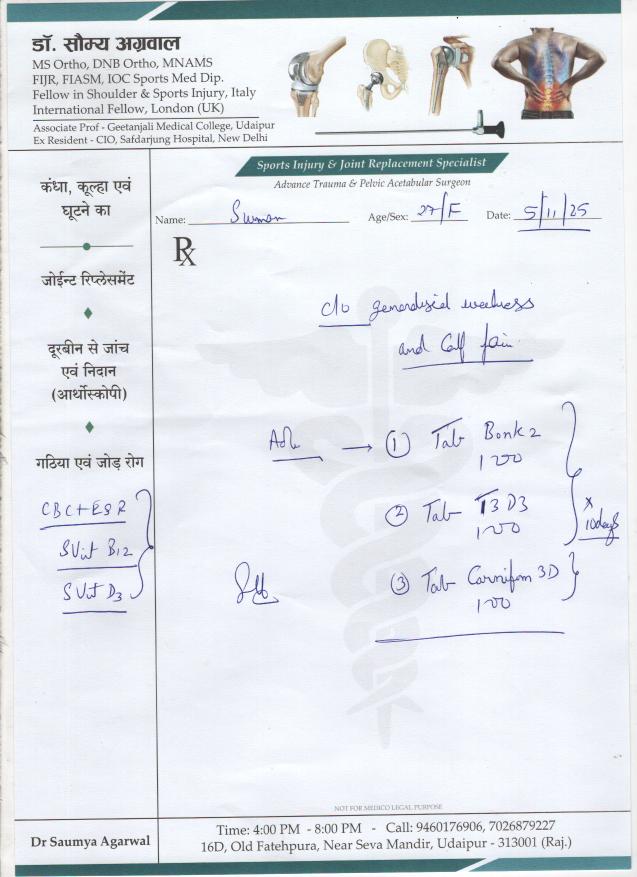 डॉ. सौम्य अग्रवाल
MS Ortho, DNB Ortho, MNAMS
FIJR, FIASM, IOC Sports Med Dip.
Fellow in Shoulder & Sports Injury, Italy
International Fellow, London (UK)
Associate Prof - Geetanjali Medical College, Udaipur
Ex Resident - CIO, Safdarjung Hospital, New Delhi
Sports Injury & Joint Replacement Specialist
Advance Trauma & Pelvic Acetabular Surgeon
Name: Suman Age/Sex: 27/F Date: 5/11/25
Rx
कंधा, कूल्हा एवं
घूटने का
जोईन्ट रिप्लेसमेंट
दूरबीन से जांच
एवं निदान
(आर्थोस्कोपी)
गठिया एवं जोड़ रोग
CBC+ESR
S Vit B12
S Vit D3
c/o generalised weakness
and Calf pain
Adv → ① Tab Bonk 2
② Tab T3 D3
③ Tab 3D
x 10days
NOT FOR MEDICO LEGAL PURPOSE
Dr Saumya Agarwal
Time: 4:00 PM - 8:00 PM - Call: 9460176906, 7026879227
16D, Old Fatehpura, Near Seva Mandir, Udaipur - 313001 (Raj.)